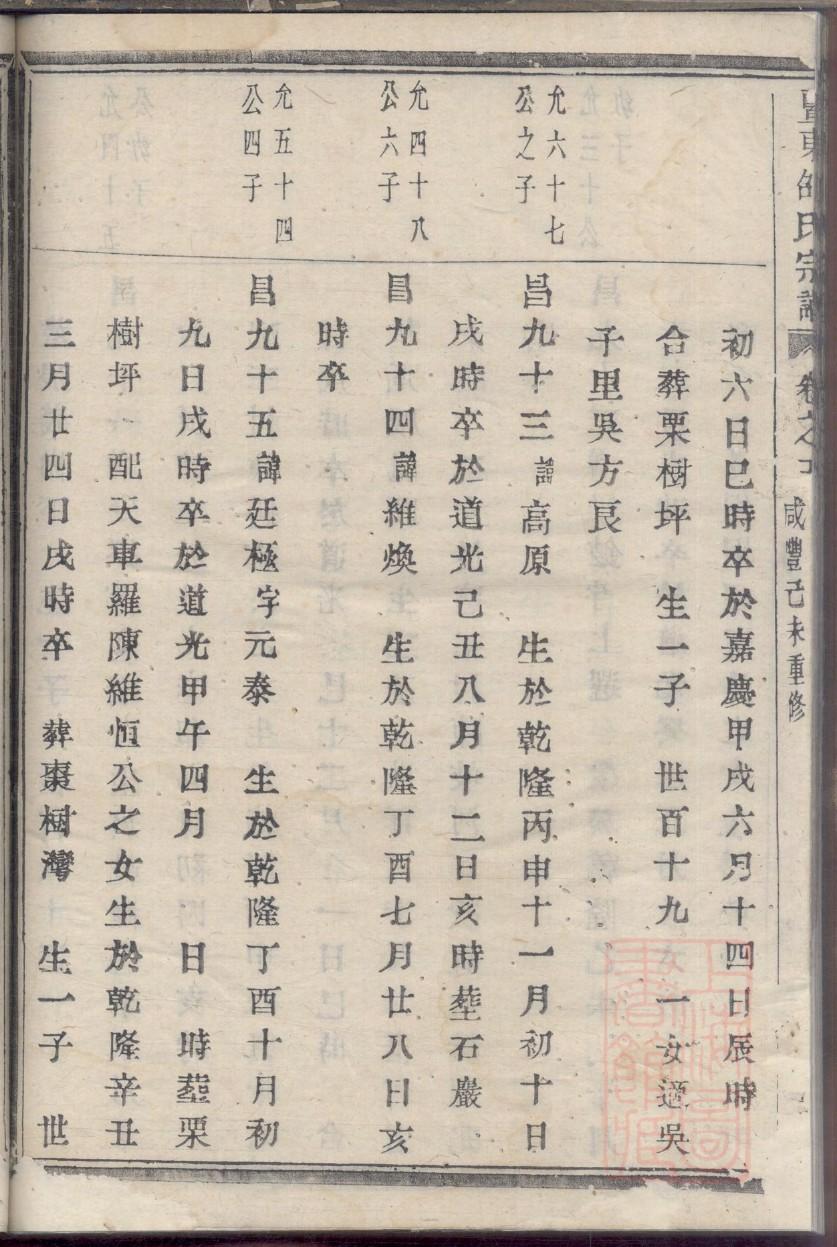 暨東俞氏宗譜 卷之 咸豐己未重修
初六日巳時卒於嘉慶甲戌六月十四日辰時
合葬栗樹坪 生一子 世百十九 一女適吳
子里吳方良
允六十七
公之子
昌九十三 諱高原 生於乾隆丙申十一月初十日
戌時卒於道光己丑八月十二日亥時塟石巖
允四十八
公六子
昌九十四 諱維煥 生於乾隆丁酉七月廿八日亥
時卒
允五十四
公四子
昌九十五 諱廷極字元泰 生於乾隆丁酉十月初
九日戌時卒於道光甲午四月 日 時塟栗
樹坪 配天車羅陳維恒公之女生於乾隆辛丑
三月廿四日戌時卒 葬棗樹灣 生一子 世